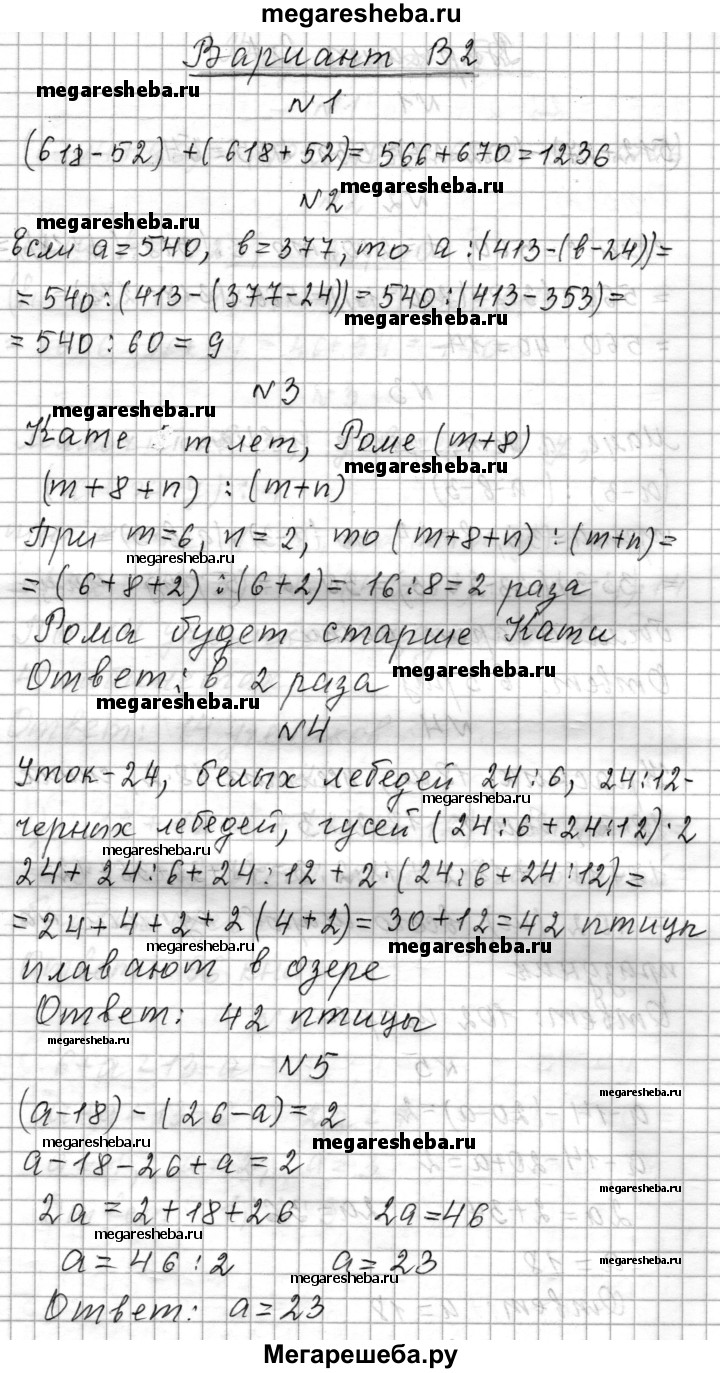 megaresheba.ru
Вариант В2
megaresheba.ru
№1
(618-52)+(618+52)=566+670=1236
megaresheba.ru
№2
megaresheba.ru
Если а=540, в=377, то а:(413-(в-24))=
=540:(413-(377-24))=540:(413-353)=
megaresheba.ru
=540:60=9
№3
megaresheba.ru
Кате m лет, Роме (m+8)
megaresheba.ru
(m+8+n):(m+n)
При m=6, n=2, то (m+8+n):(m+n)=
megaresheba.ru
=(6+8+2):(6+2)=16:8=2 раза
Рома будет старше Кати
megaresheba.ru
Ответ: в 2 раза
megaresheba.ru
№4
Уток-24, белых лебедей 24:6, 24:12-
megaresheba.ru
черных лебедей, гусей (24:6+24:12)·2
megaresheba.ru
24+24:6+24:12+2·(24:6+24:12)=
=24+4+2+2(4+2)=30+12=42 птицп
megaresheba.ru megaresheba.ru
плавают в озере
Ответ: 42 птицы
megaresheba.ru
№5
megaresheba.ru
(а-18)-(26-а)=2
megaresheba.ru megaresheba.ru
а-18-26+а=2
megaresheba.ru
2а=2+18+26 2а=46
megaresheba.ru
а=46:2 а=23
megaresheba.ru
megaresheba.ru
Ответ: а=23
megaresheba.ru
Мегарешеба.ру